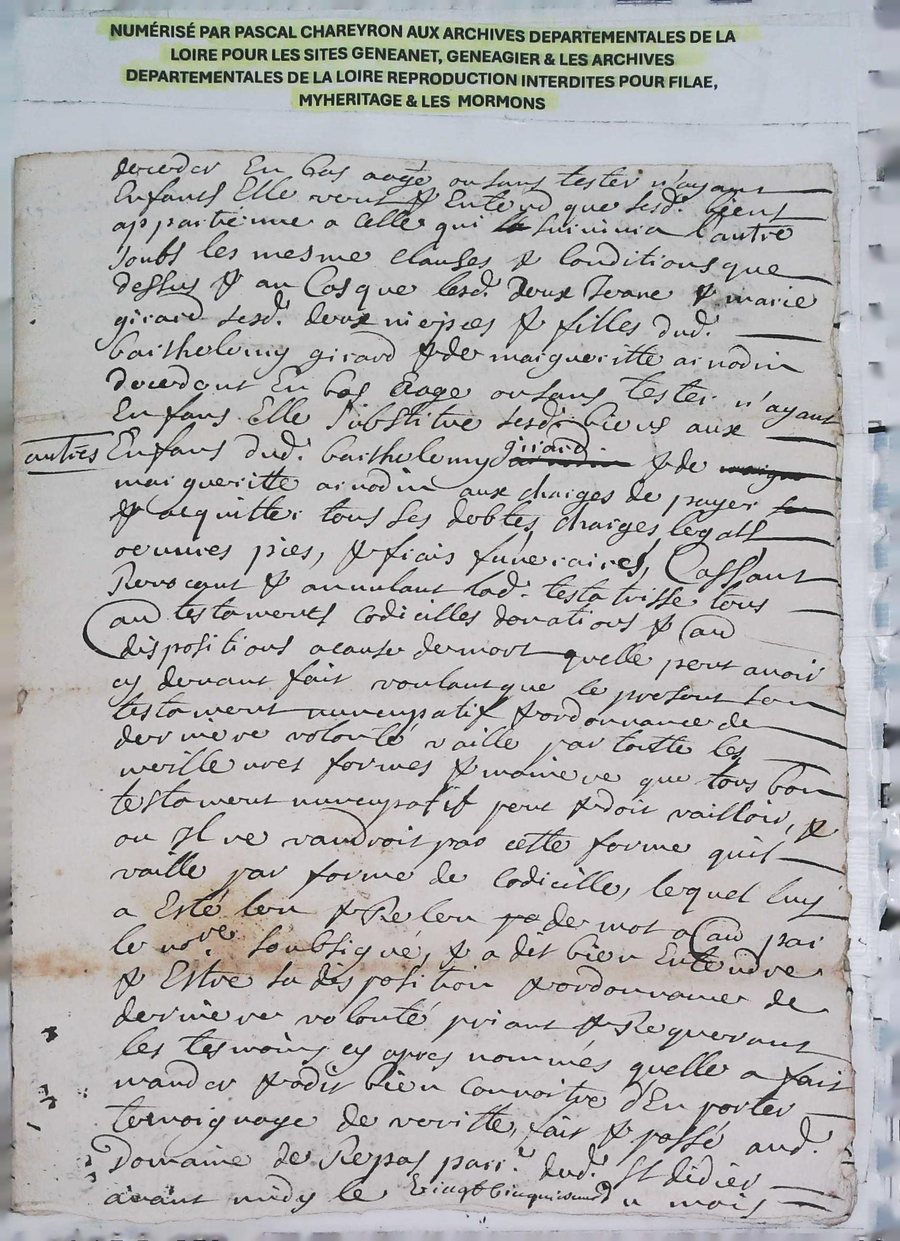 NUMÉRISÉ PAR PASCAL CHAREYRON AUX ARCHIVES DEPARTEMENTALES DE LA
LOIRE POUR LES SITES GENEANET, GENEAGIER & LES ARCHIVES
DEPARTEMENTALES DE LA LOIRE REPRODUCTION INTERDITES POUR FILAE,
MYHERITAGE & LES MORMONS
deceder En bas aage ou sans tester n'ayant
Enfants Elle veut & Entend que sesd. bient
appartienne a celle qui suivivra l'autre
soubs les mesme clauses & Conditions que
dessus & au Cas que lesd. deux Jeane & marie
girard sesd. deux niepces & filles dud.
bartholemy girard & de margueritte ainodin
decedent En bas aage ou sans tester n'ayant
Enfans Elle substitue sesd. biens aux
autres Enfans dud. bartholemy girard & de
margueritte ainodin aux charges de payer
& acquitter tous ses debtes, charges, legatz
oeuvres pies, & frais funeraires, Cassant
Revocant & annulant lad. testatrisse tous
au testaments Codicilles donations & au
dispositions a cause de mort quelle peut avoir
cy devant fait voulant que le present son
testament nuncupatif & ordonnance de
derniere volonté vaille par toutte les
meilleures formes & maniere que tous bon
testament nuncupatif peut & doit vailloir, &
ou Il ne vaudroit pas cette forme quil
vaille par forme de Codicille, lequel luy
a Esté leu & Releu de mot a au par
le no.re soubsigné, & a dit bien Entendre
& Estre sa disposition & ordonnance de
derniere volonté priant & Requerant
les tesmoins cy apres nommés quelle a fait
mander & dit bien Connoitre d'En porter
temoignage de veritte, fait & passé aud.
Domaine de Repas parr.e dud. St didier
avant midy le Vingt Cinquiesme du mois